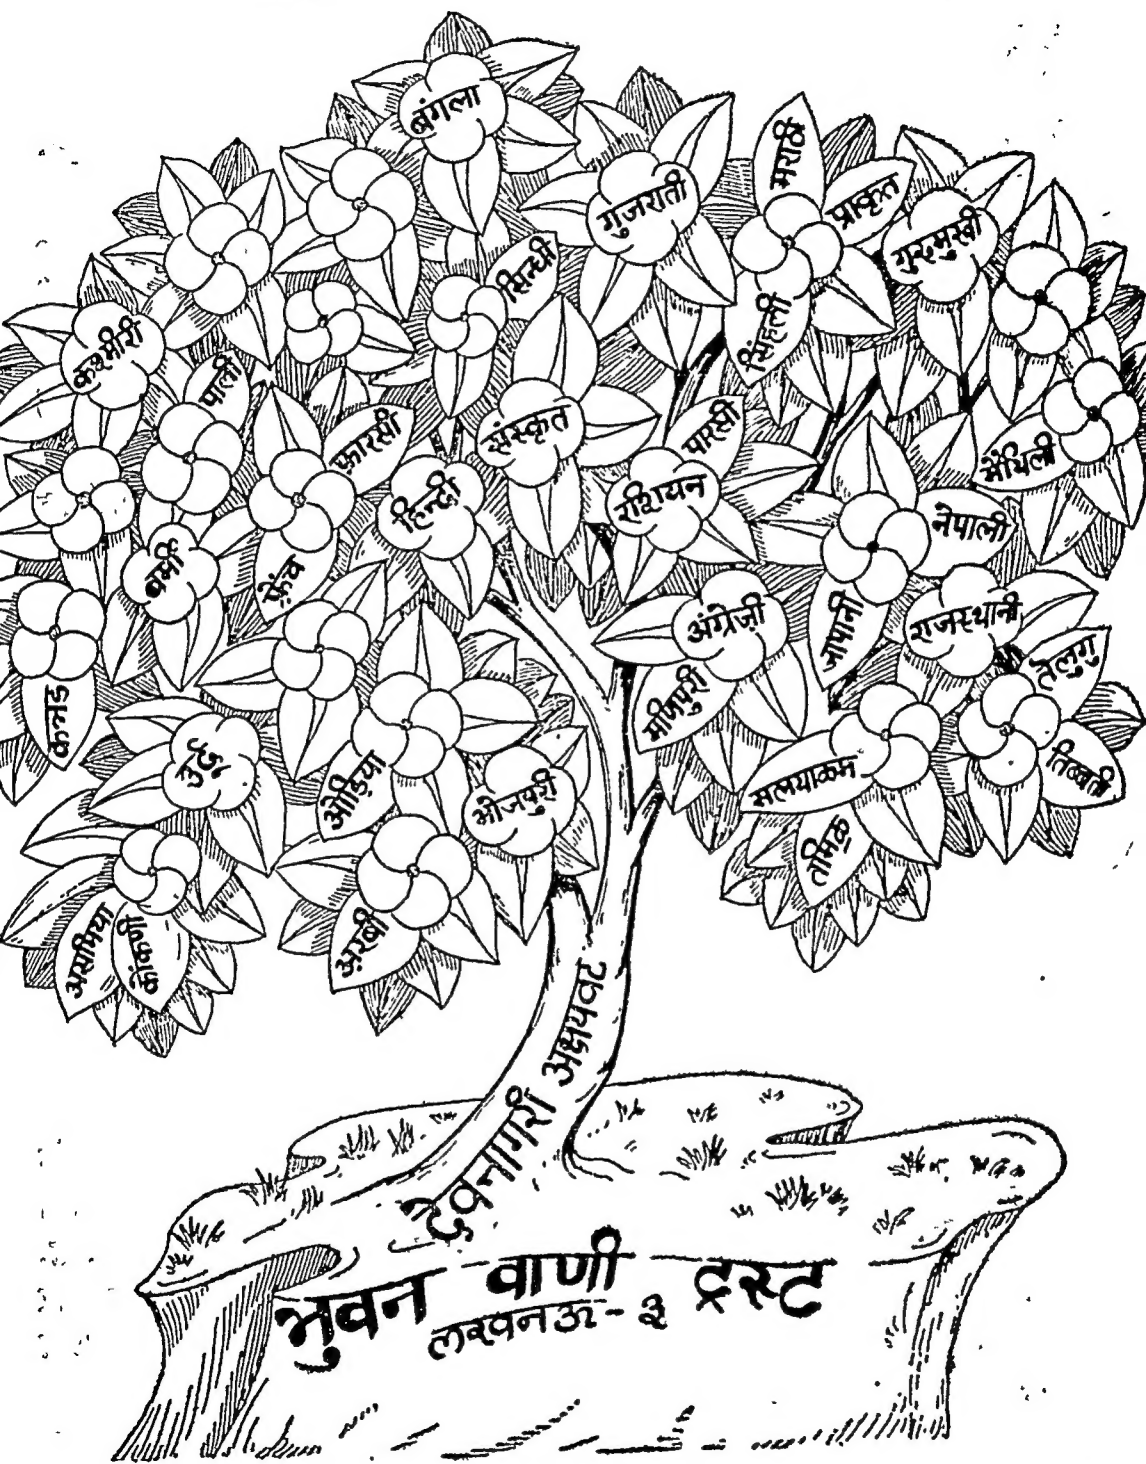 बंगला
गुजराती
मराठी
प्राकृत
गुरुमुखी
सिन्धी
सिंहली
कश्मीरी
पाली
फ़ारसी
संस्कृत
पारसी
मैथिली
हिन्दी
रशियन
नेपाली
बर्मी
फ़्रेंच
अंग्रेज़ी
जापानी
राजस्थानी
तेलुगु
कन्नड
मणिपुरी
उर्दू
ओड़िया
भोजपुरी
मलयाळम
तिब्बती
तमिळ
असमिया
कोंकणी
अ़रबी
देवनागरी अक्षयवट
भुवन वाणी ट्रस्ट
लखनऊ-३